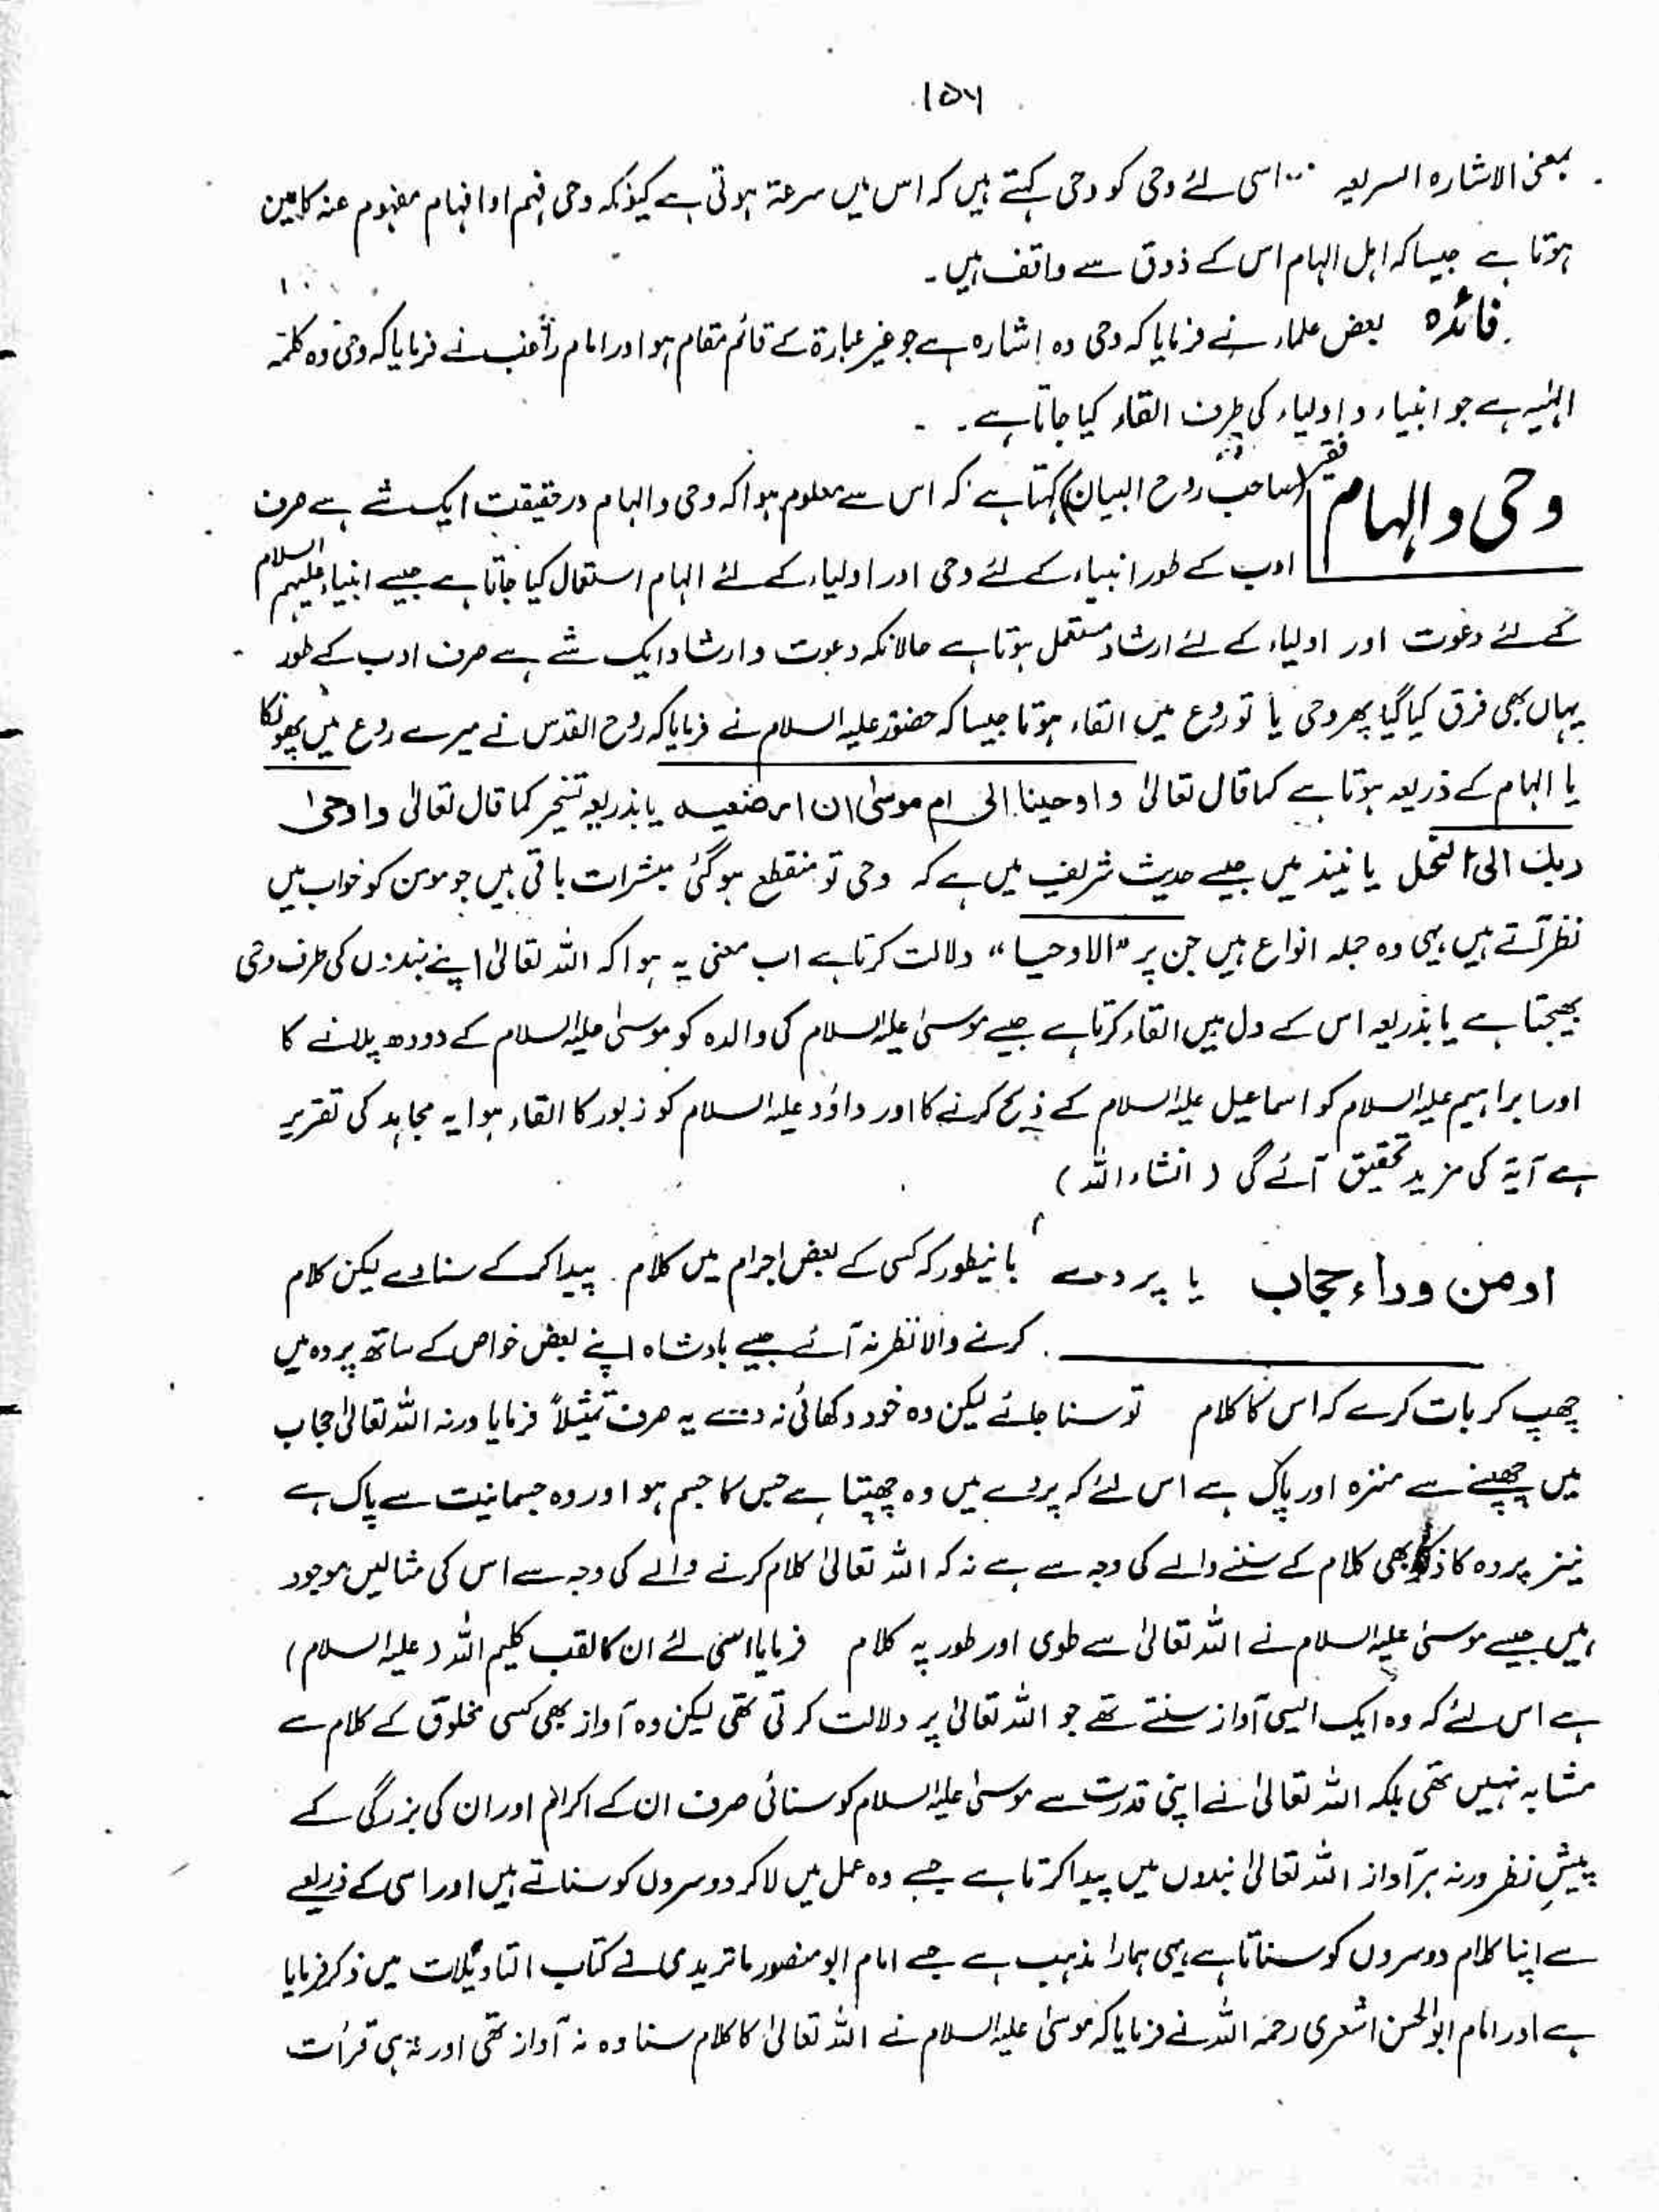 ۱۵۶
بمعنی الاشارہ السریعہ ... اسی لئے وحی کو وحی کہتے ہیں کہ اس میں سرعۃ ہوتی ہے کیونکہ وحی فہم اوا فہام مفہوم عنہ کا عین
ہوتا ہے جیسا کہ اہل الہام اس کے ذوق سے واقف ہیں۔
فائدہ بعض علماء نے فرمایا کہ وحی وہ اشارہ ہے جو غیر عبارۃ کے قائم مقام ہو اور امام راغب نے فرمایا کہ وحی وہ کلمۃ
الہٰیہ ہے جو انبیاء و اولیاء کی طرف القاء کیا جاتا ہے۔
وحی و الہام فقیر (صاحب روح البیان) کہتا ہے کہ اس سے معلوم ہوا کہ وحی و الہام درحقیقت ایک شے ہے صرف
ادب کے طور انبیاء کے لئے وحی اور اولیاء کے لئے الہام استعمال کیا جاتا ہے جیسے انبیاء علیہم السلام
کے لئے دعوت اور اولیاء کے لئے ارشاد مستعمل ہوتا ہے حالانکہ دعوت و ارشاد ایک شے ہے صرف ادب کے طور
یہاں بھی فرق کیا گیا پھر وحی یا تو روع میں القاء ہوتا جیسا کہ حضور علیہ السلام نے فرمایا کہ روح القدس نے میرے روع میں پھونکا
یا الہام کے ذریعہ ہوتا ہے کما قال تعالیٰ و اوحینا الی ام موسیٰ ان ارضعیہ یا بذریعہ تسخیر کما قال تعالیٰ و اوحیٰ
ربک الی النحل یا نیند میں جیسے حدیث شریف میں ہے کہ وحی تو منقطع ہوگئی مبشرات باقی ہیں جو مومن کو خواب میں
نظر آتے ہیں یہی وہ جملہ انواع ہیں جن پر "الا وحیا" دلالت کرتا ہے اب معنی یہ ہوا کہ اللہ تعالیٰ اپنے بندوں کی طرف وحی
بھیجتا ہے یا بذریعہ اس کے دل میں القاء کرتا ہے جیسے موسیٰ علیہ السلام کی والدہ کو موسیٰ علیہ السلام کے دودھ پلانے کا
اور ابراہیم علیہ السلام کو اسماعیل علیہ السلام کے ذبح کرنے کا اور داؤد علیہ السلام کو زبور کا القاء ہوا یہ مجاہد کی تقریر
ہے آیۃ کی مزید تحقیق آئے گی (انشاء اللہ)
او من وراء حجاب یا پردے بانیطور کہ کسی کے بعض اجرام میں کلام پیدا کرکے سنا دے لیکن کلام
کرنے والا نظر نہ آئے جیسے بادشاہ اپنے بعض خواص کے ساتھ پردہ میں
چھپ کر بات کرے کہ اس کا کلام تو سنا جائے لیکن وہ خود دکھائی نہ دے یہ صرف تمثیلاً فرمایا ورنہ اللہ تعالیٰ حجاب
میں چھپنے سے منزہ اور پاک ہے اس لئے کہ پردے میں وہ چھپتا ہے جس کا جسم ہو اور وہ جسمانیت سے پاک ہے
نیز پردہ کا ذکر بھی کلام کے سننے والے کی وجہ سے ہے نہ کہ اللہ تعالیٰ کلام کرنے والے کی وجہ سے اس کی مثالیں موجود
ہیں جیسے موسیٰ علیہ السلام نے اللہ تعالیٰ سے طوی اور طور پہ کلام فرمایا اسی لئے ان کا لقب کلیم اللہ (علیہ السلام)
ہے اس لئے کہ وہ ایک ایسی آواز سنتے تھے جو اللہ تعالیٰ پر دلالت کرتی تھی لیکن وہ آواز بھی کسی مخلوق کے کلام سے
مشابہ نہیں تھی بلکہ اللہ تعالیٰ نے اپنی قدرت سے موسیٰ علیہ السلام کو سنائی صرف ان کے اکرام اور ان کی بزرگی کے
پیشِ نظر ورنہ ہر آواز اللہ تعالیٰ بندوں میں پیدا کرتا ہے جسے وہ عمل میں لاکر دوسروں کو سناتے ہیں اور اسی کے ذریعے
سے اپنا کلام دوسروں کو سناتا ہے یہی ہمارا مذہب ہے جسے امام ابو منصور ماتریدی نے کتاب التاویلات میں ذکر فرمایا
ہے اور امام ابوالحسن اشعری رحمۃ اللہ نے فرمایا کہ موسیٰ علیہ السلام نے اللہ تعالیٰ کا کلام سنا وہ نہ آواز تھی اور نہ ہی قرأت